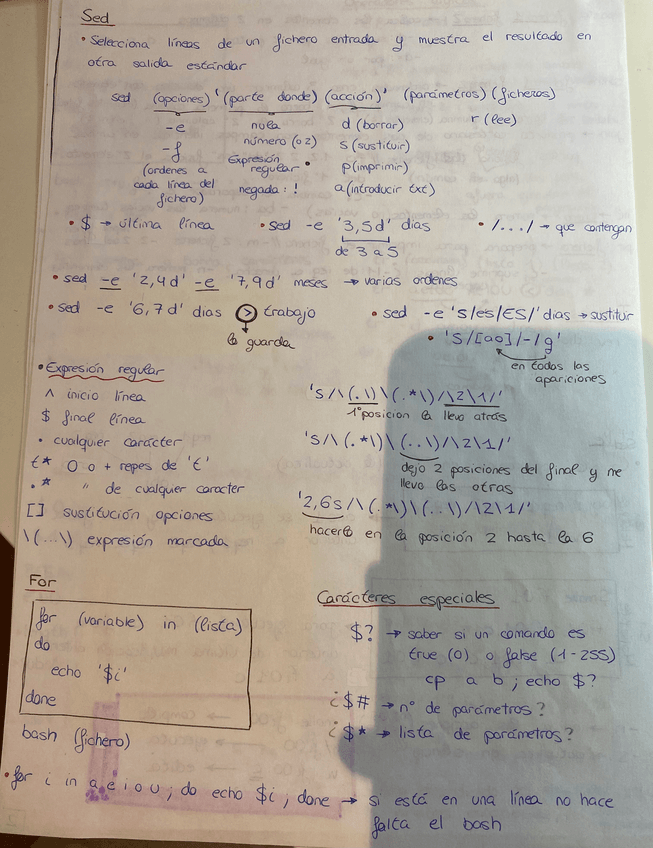 Sed
• Selecciona líneas de un fichero entrada y muestra el resultado en
otra salida estándar
sed (opciones) '(parte donde) (acción)' (parámetros) (ficheros)
-e nula d (borrar) r (lee)
-f número (o 2) s (sustituir)
(ordenes a Expresión regular • p (imprimir)
cada línea del negada: ! a (introducir txt)
fichero)
• $ → última línea • sed -e '3,5d' dias • /.../ → que contengan
de 3 a 5
• sed -e '2,4d' -e '7,9d' meses → varias ordenes
• sed -e '6,7d' dias > trabajo • sed -e 's/es/ES/' dias → sustituir
lo guarda • 's/[ao]/-/g'
en todas las
apariciones
• Expresión regular
^ inicio línea 's/\(.\)\(.*\)/\2\1/'
$ final línea 1ª posicion la llevo atrás
• cualquier carácter 's/\(.*\)\(..\)/\2\1/'
t* 0 o + repes de 't' dejo 2 posiciones del final y me
.* " de cualquier caracter llevo las otras
[] sustitución opciones '2,6s/\(.*\)\(..\)/\2\1/'
\(...\) expresión marcada hacerlo en la posición 2 hasta la 6
For
for (variable) in (lista)
do
echo '$i'
done
bash (fichero)
Carácteres especiales
$? → saber si un comando es
true (0) o false (1-255)
cp a b ; echo $?
¿$# → nº de parámetros?
¿$* → lista de parámetros?
• for i in a e i o u ; do echo $i ; done → si está en una línea no hace
falta el bash